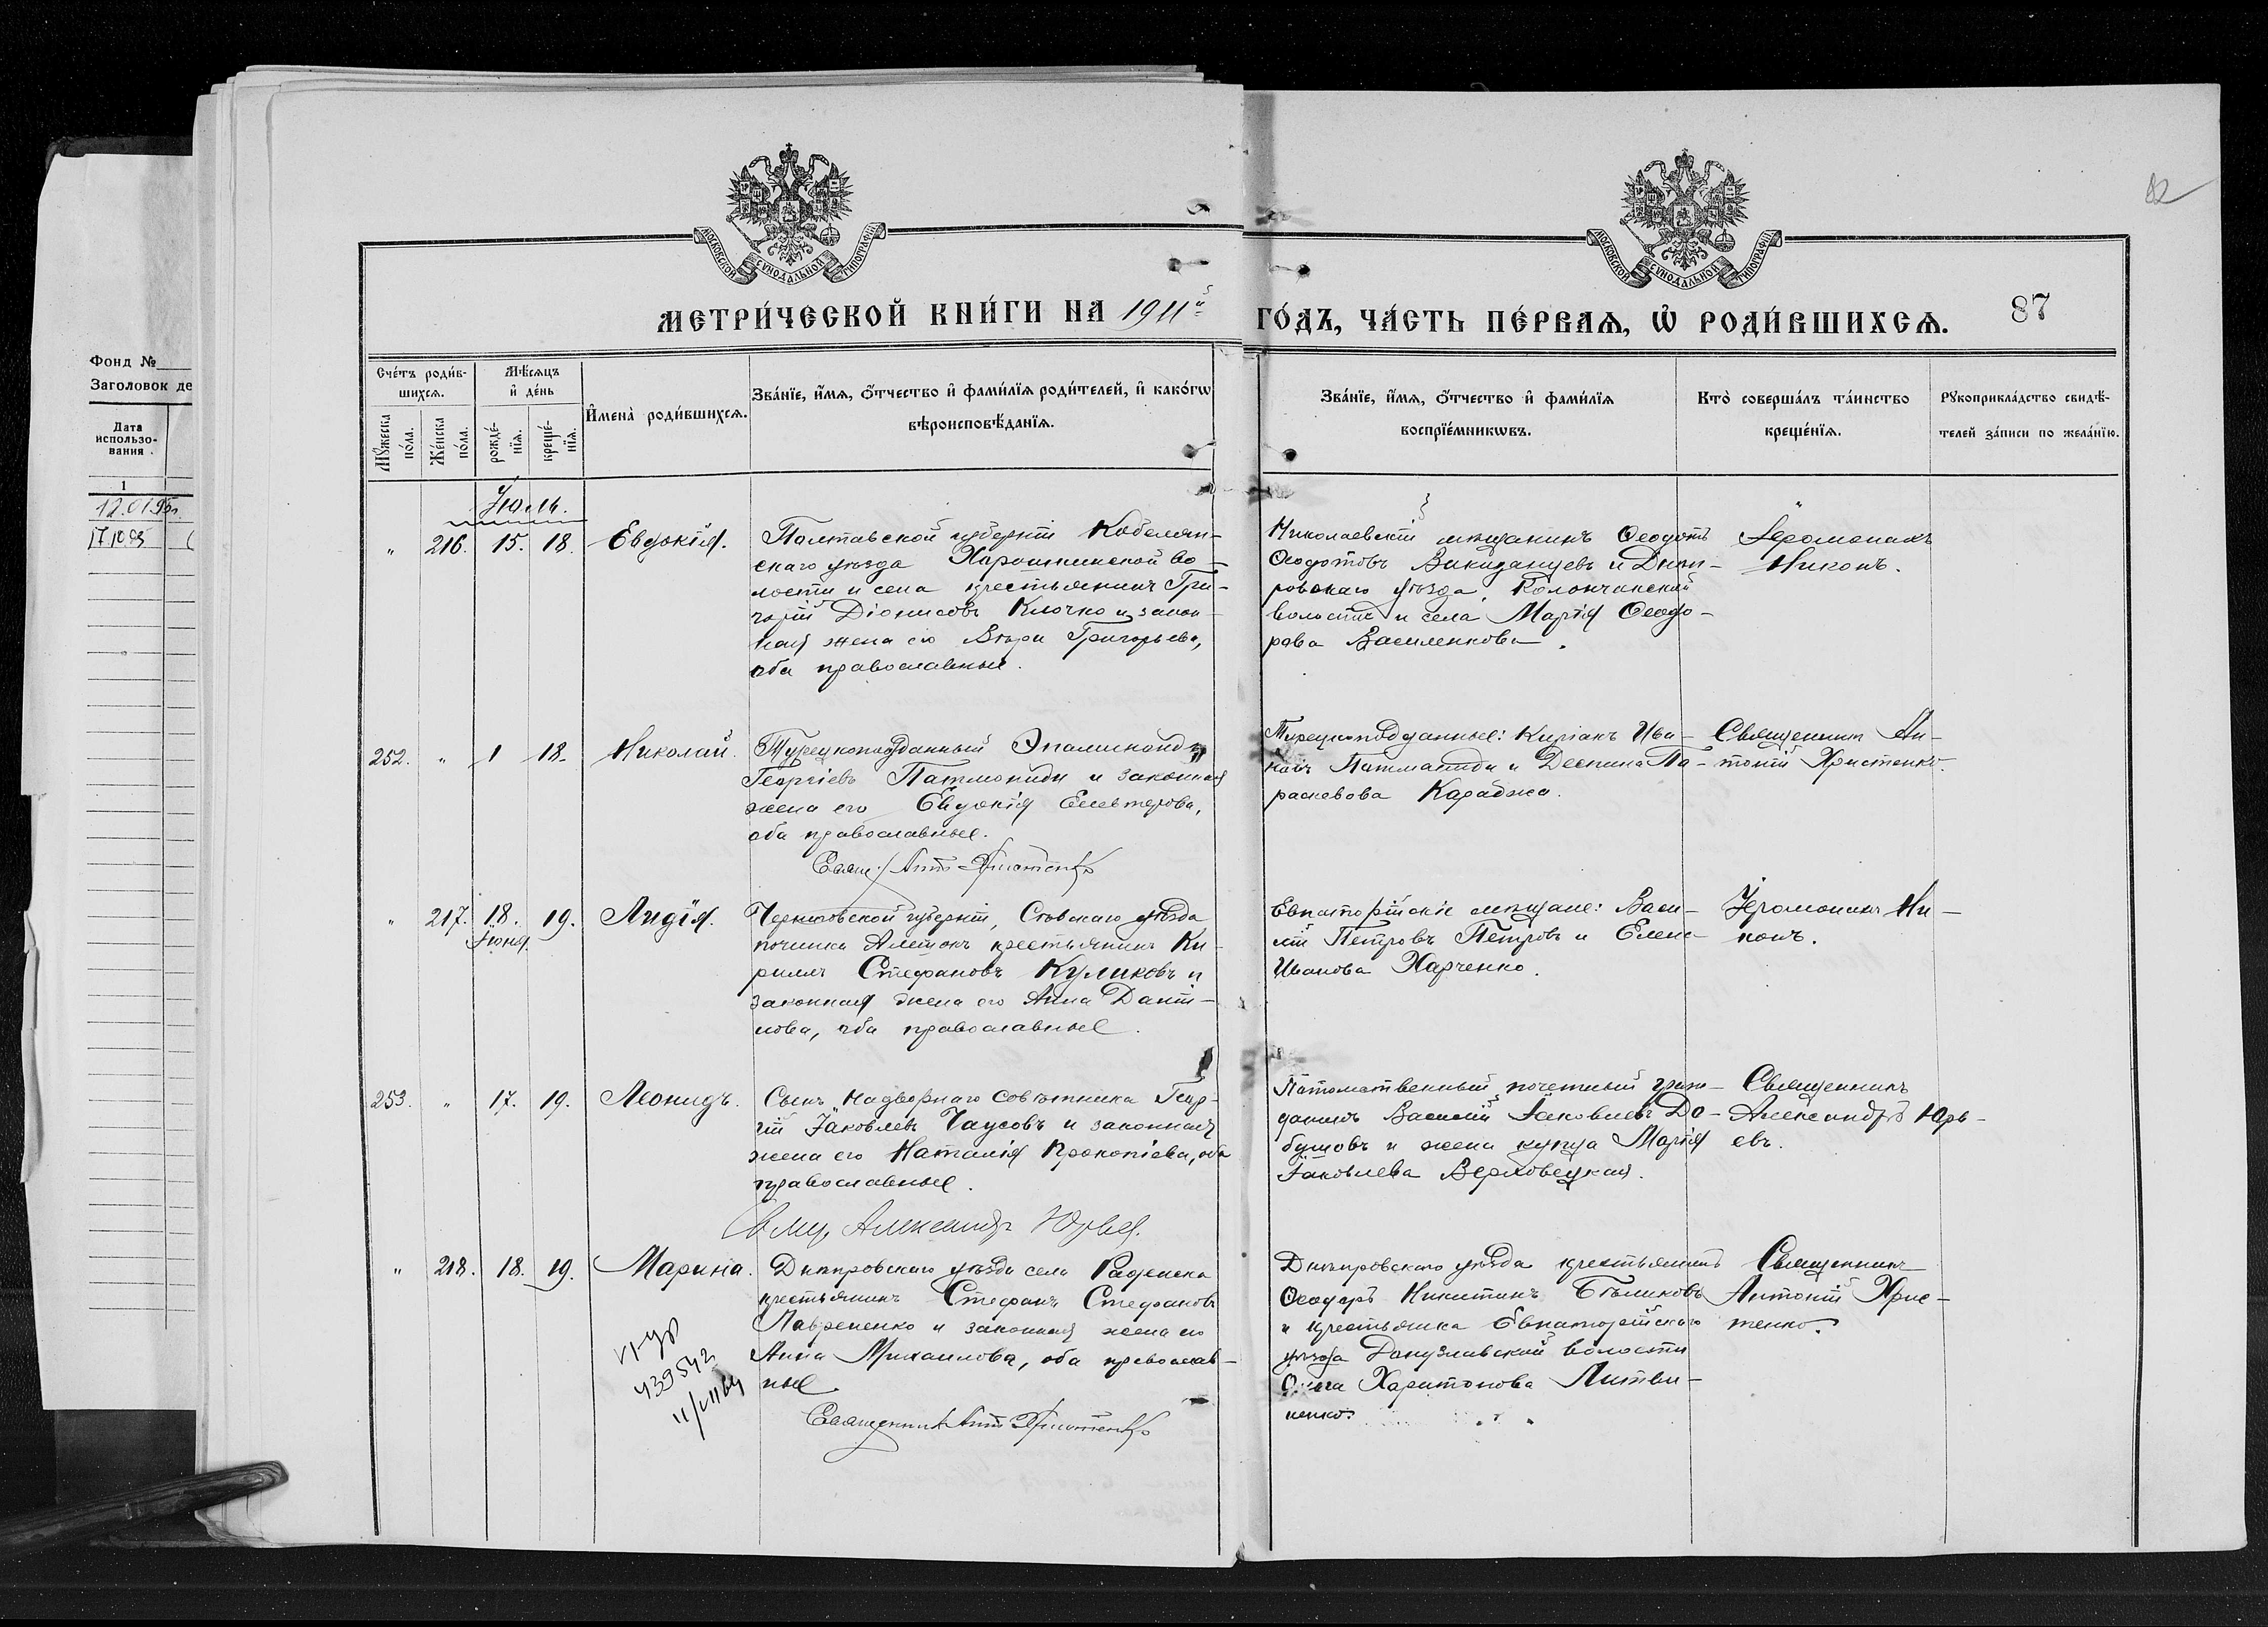 82
МОСКОВСКОЙ СѴНОДАЛЬНОЙ ТИПОГРАФІИ
МОСКОВСКОЙ СѴНОДАЛЬНОЙ ТИПОГРАФІИ
МЕТРИ́ЧЕСКОЙ КНИ́ГИ НА 1911й ГО́ДЪ, ЧА́СТЬ ПЕ́РВАѦ, Ѡ РОДИ́ВШИХСѦ.
87
Фонд №
Заголовок де
Дата
использо-
вания
1
12.01.95г.
17.10.95
Сче́тъ роди́в-
шихсѧ.
Мѣ́сѧцъ
и҆ де́нь
Мꙋ́жеска
по́ла.
Же́нска
по́ла.
рожде́-
нїѧ.
креще́-
нїѧ.
И҆мена̀ роди́вшихсѧ.
Зва́нїе, и҆́мѧ, ѻ҆́тчество и҆ фами́лїѧ роди́телей, и҆ како́гѡ
вѣроисповѣ́данїѧ.
Зва́нїе, и҆́мѧ, ѻ҆́тчество и҆ фами́лїѧ
воспрїе́мникѡвъ.
Кто̀ соверша́лъ та́инство
креще́нїѧ.
Рꙋкоприкла́дство свидѣ́-
телей за́писи по жела́нїю.
Іюль.
" 216. 15. 18. Евдокія.
Полтавской губерніи Кобеляк-
скаго уѣзда во-
лости и села крестьянинъ Гри-
горій Діонисовъ Клочко и закон-
ная жена его Вѣра Григорьева,
оба православные.
Николаевскій мѣщанинъ Ѳеодотъ
Ѳеодотовъ и Днѣп-
ровскаго уѣзда, Колончакской
волости и села Марія Ѳеодо-
рова Василенкова.
Іеромонахъ
Никонъ.
252. " 1 18. Николай.
Турецкоподданный Эпаминондъ
Георгіевъ Патмониди и законная
жена его Евдокія Елевтерова,
оба православные.
Свящ. Ант. Христенко
Турецкоподданные: Киріакъ Ива-
новъ Патманиди и Деспина Па-
раскевова Караджа.
Священникъ Ан-
тоній Христенко.
" 217. 18. 19. Лидія.
Іюня.
Черниговской губерніи, уѣзда
починка крестьянинъ Ки-
риллъ Стефановъ Куликовъ и
законная жена его Анна Даніи-
лова, оба православные.
Евпаторійскіе мѣщане: Васи-
лій Петровъ Петровъ и Елена
Иванова Харченко.
Іеромонахъ Ни-
конъ.
253. " 17. 19. Леонидъ.
Сынъ Надворнаго Совѣтника Геор-
гій Іаковлевъ Чаусовъ и законная
жена его Наталія Прокопіева, оба
православные.
Александръ Юрьевъ.
Потомственный почетный граж-
данинъ Василій Іаковлевъ До-
бушовъ и жена купца Марія
Іаковлева Верховецкая.
Священникъ
Александръ Юрь-
евъ.
" 218. 18. 19. Марина.
Днѣпровскаго уѣзда села Раденска
крестьянинъ Стефанъ Стефановъ
Лавриненко и законная жена его
Анна Михаилова, оба православ-
ные.
Священникъ Ант. Христенко
439542
Днѣпровскаго уѣзда крестьянинъ
Ѳеодоръ Никитинъ Бѣликовъ
и крестьянка Евпаторійскаго
уѣзда Донузлавской волости
Ольга Харитонова Литви-
ненко.
Священникъ
Антоній Хрис-
тенко.